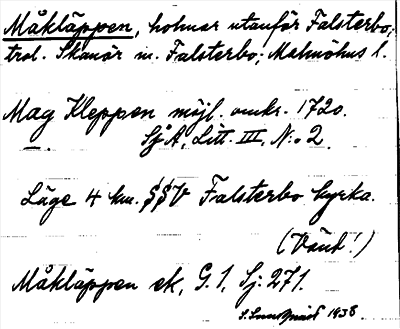 Måkläppen, holmar utanför Falsterbo;
trol. Skanör m. Falsterbo; Malmöhus l.
Mag Kleppen möjl. omkr. 1720.
SjA, Litt. III, N:o 2.
Läge 4 km. SSV Falsterbo kyrka.
(Vänd!)
Måkläppen ek, G. 1, Sj: 271.
1938